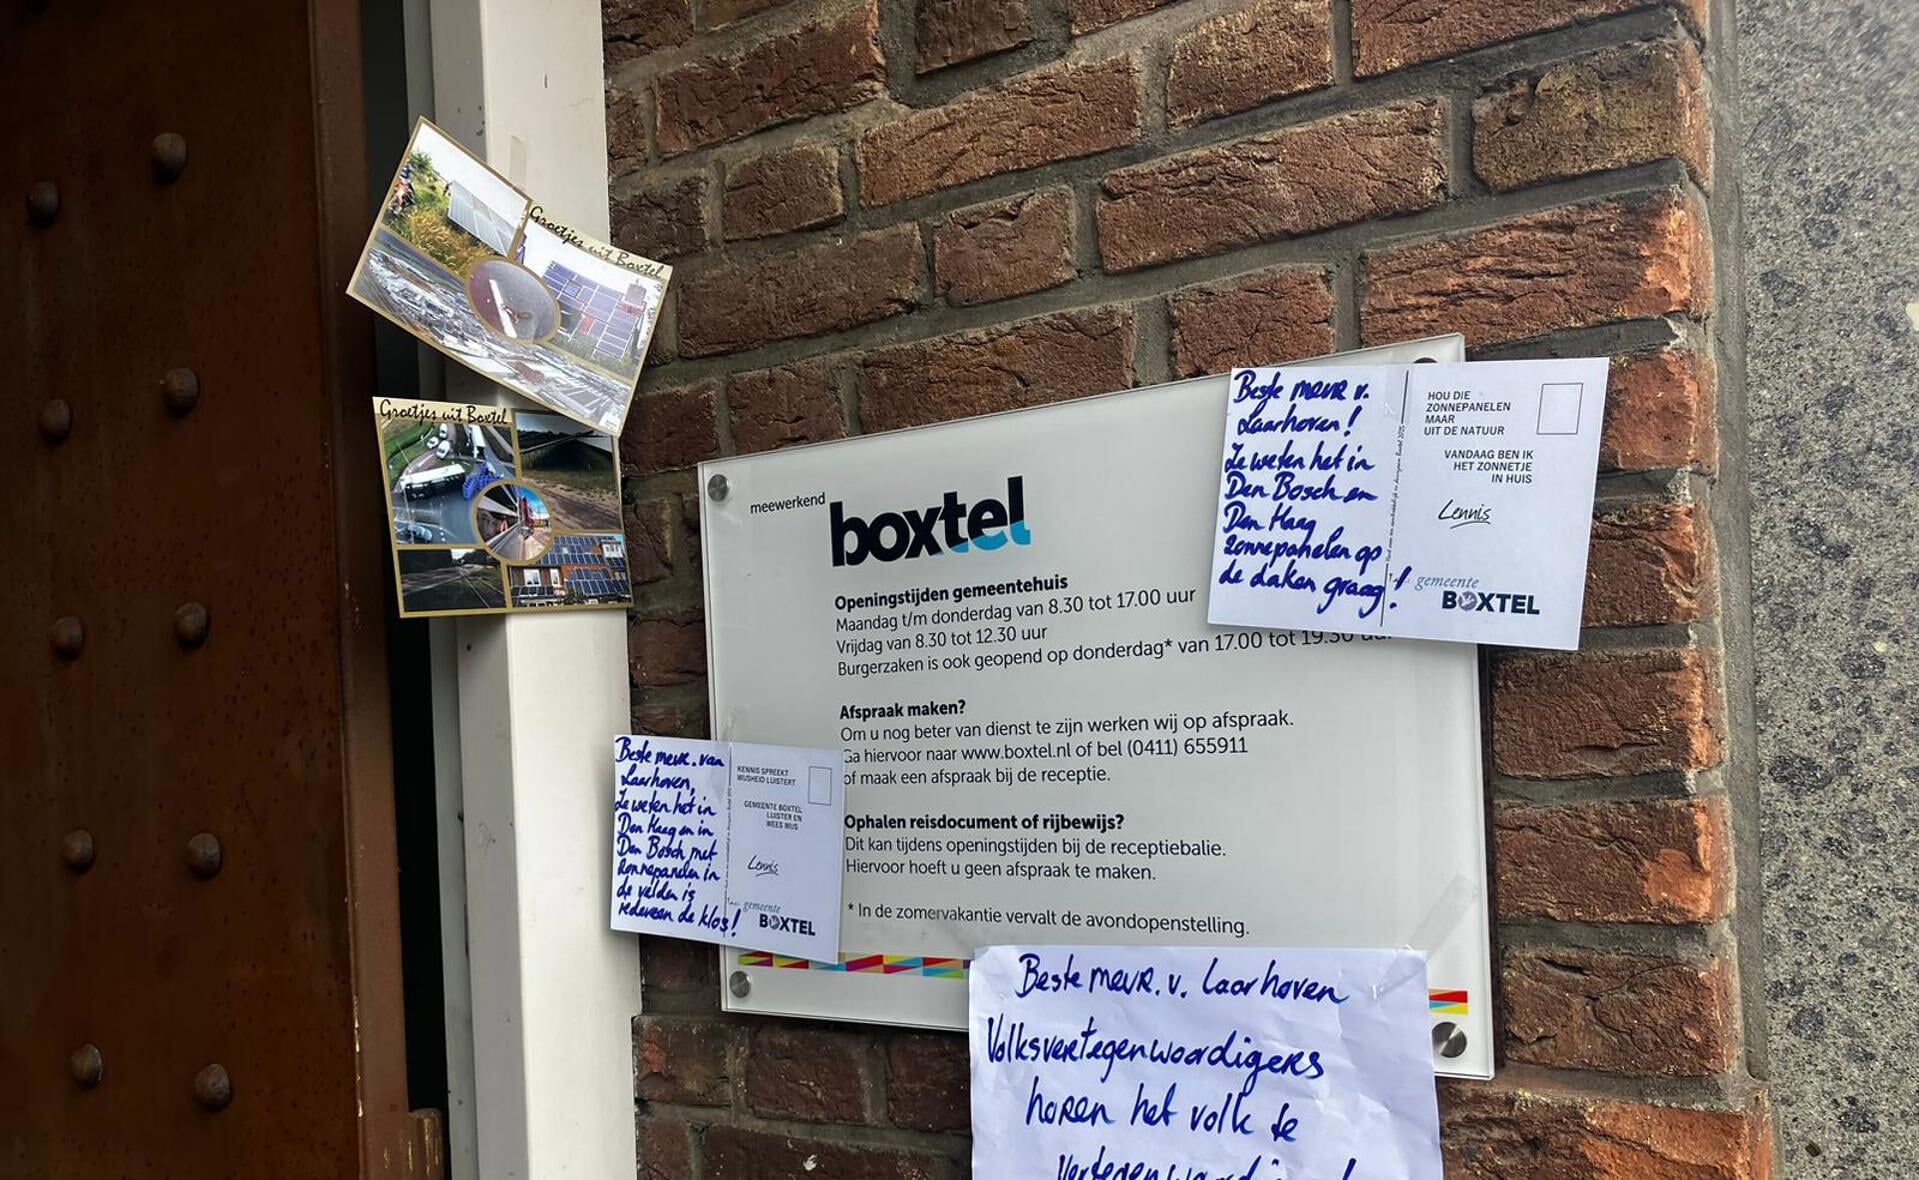 Groetjes uit Boxtel
Groetjes uit Boxtel
meewerkend
boxtel
Openingstijden gemeentehuis
Maandag t/m donderdag van 8.30 tot 17.00 uur
Vrijdag van 8.30 tot 12.30 uur
Burgerzaken is ook geopend op donderdag* van 17.00 tot 19.30 uur
Afspraak maken?
Om u nog beter van dienst te zijn werken wij op afspraak.
Ga hiervoor naar www.boxtel.nl of bel (0411) 655911
of maak een afspraak bij de receptie.
Ophalen reisdocument of rijbewijs?
Dit kan tijdens openingstijden bij de receptiebalie.
Hiervoor hoeft u geen afspraak te maken.
* In de zomervakantie vervalt de avondopenstelling.
Beste mevr. v.
Laarhoven!
Ze weten het in
Den Bosch en
Den Haag
zonnepanelen op
de daken graag!
HOU DIE
ZONNEPANELEN
MAAR
UIT DE NATUUR
VANDAAG BEN IK
HET ZONNETJE
IN HUIS
Lennis
gemeente
BOXTEL
Beste mevr. van
Laarhoven,
Ze weten het in
Den Haag en in
Den Bosch met
zonnepanelen in
de velden is
iedereen de klos!
KENNIS SPREEKT
WIJSHEID LUISTERT
GEMEENTE BOXTEL
LUISTER EN
WEES WIJS
Lennis
gemeente
BOXTEL
Beste mevr. v. Laarhoven
Volksvertegenwoordigers
horen het volk te